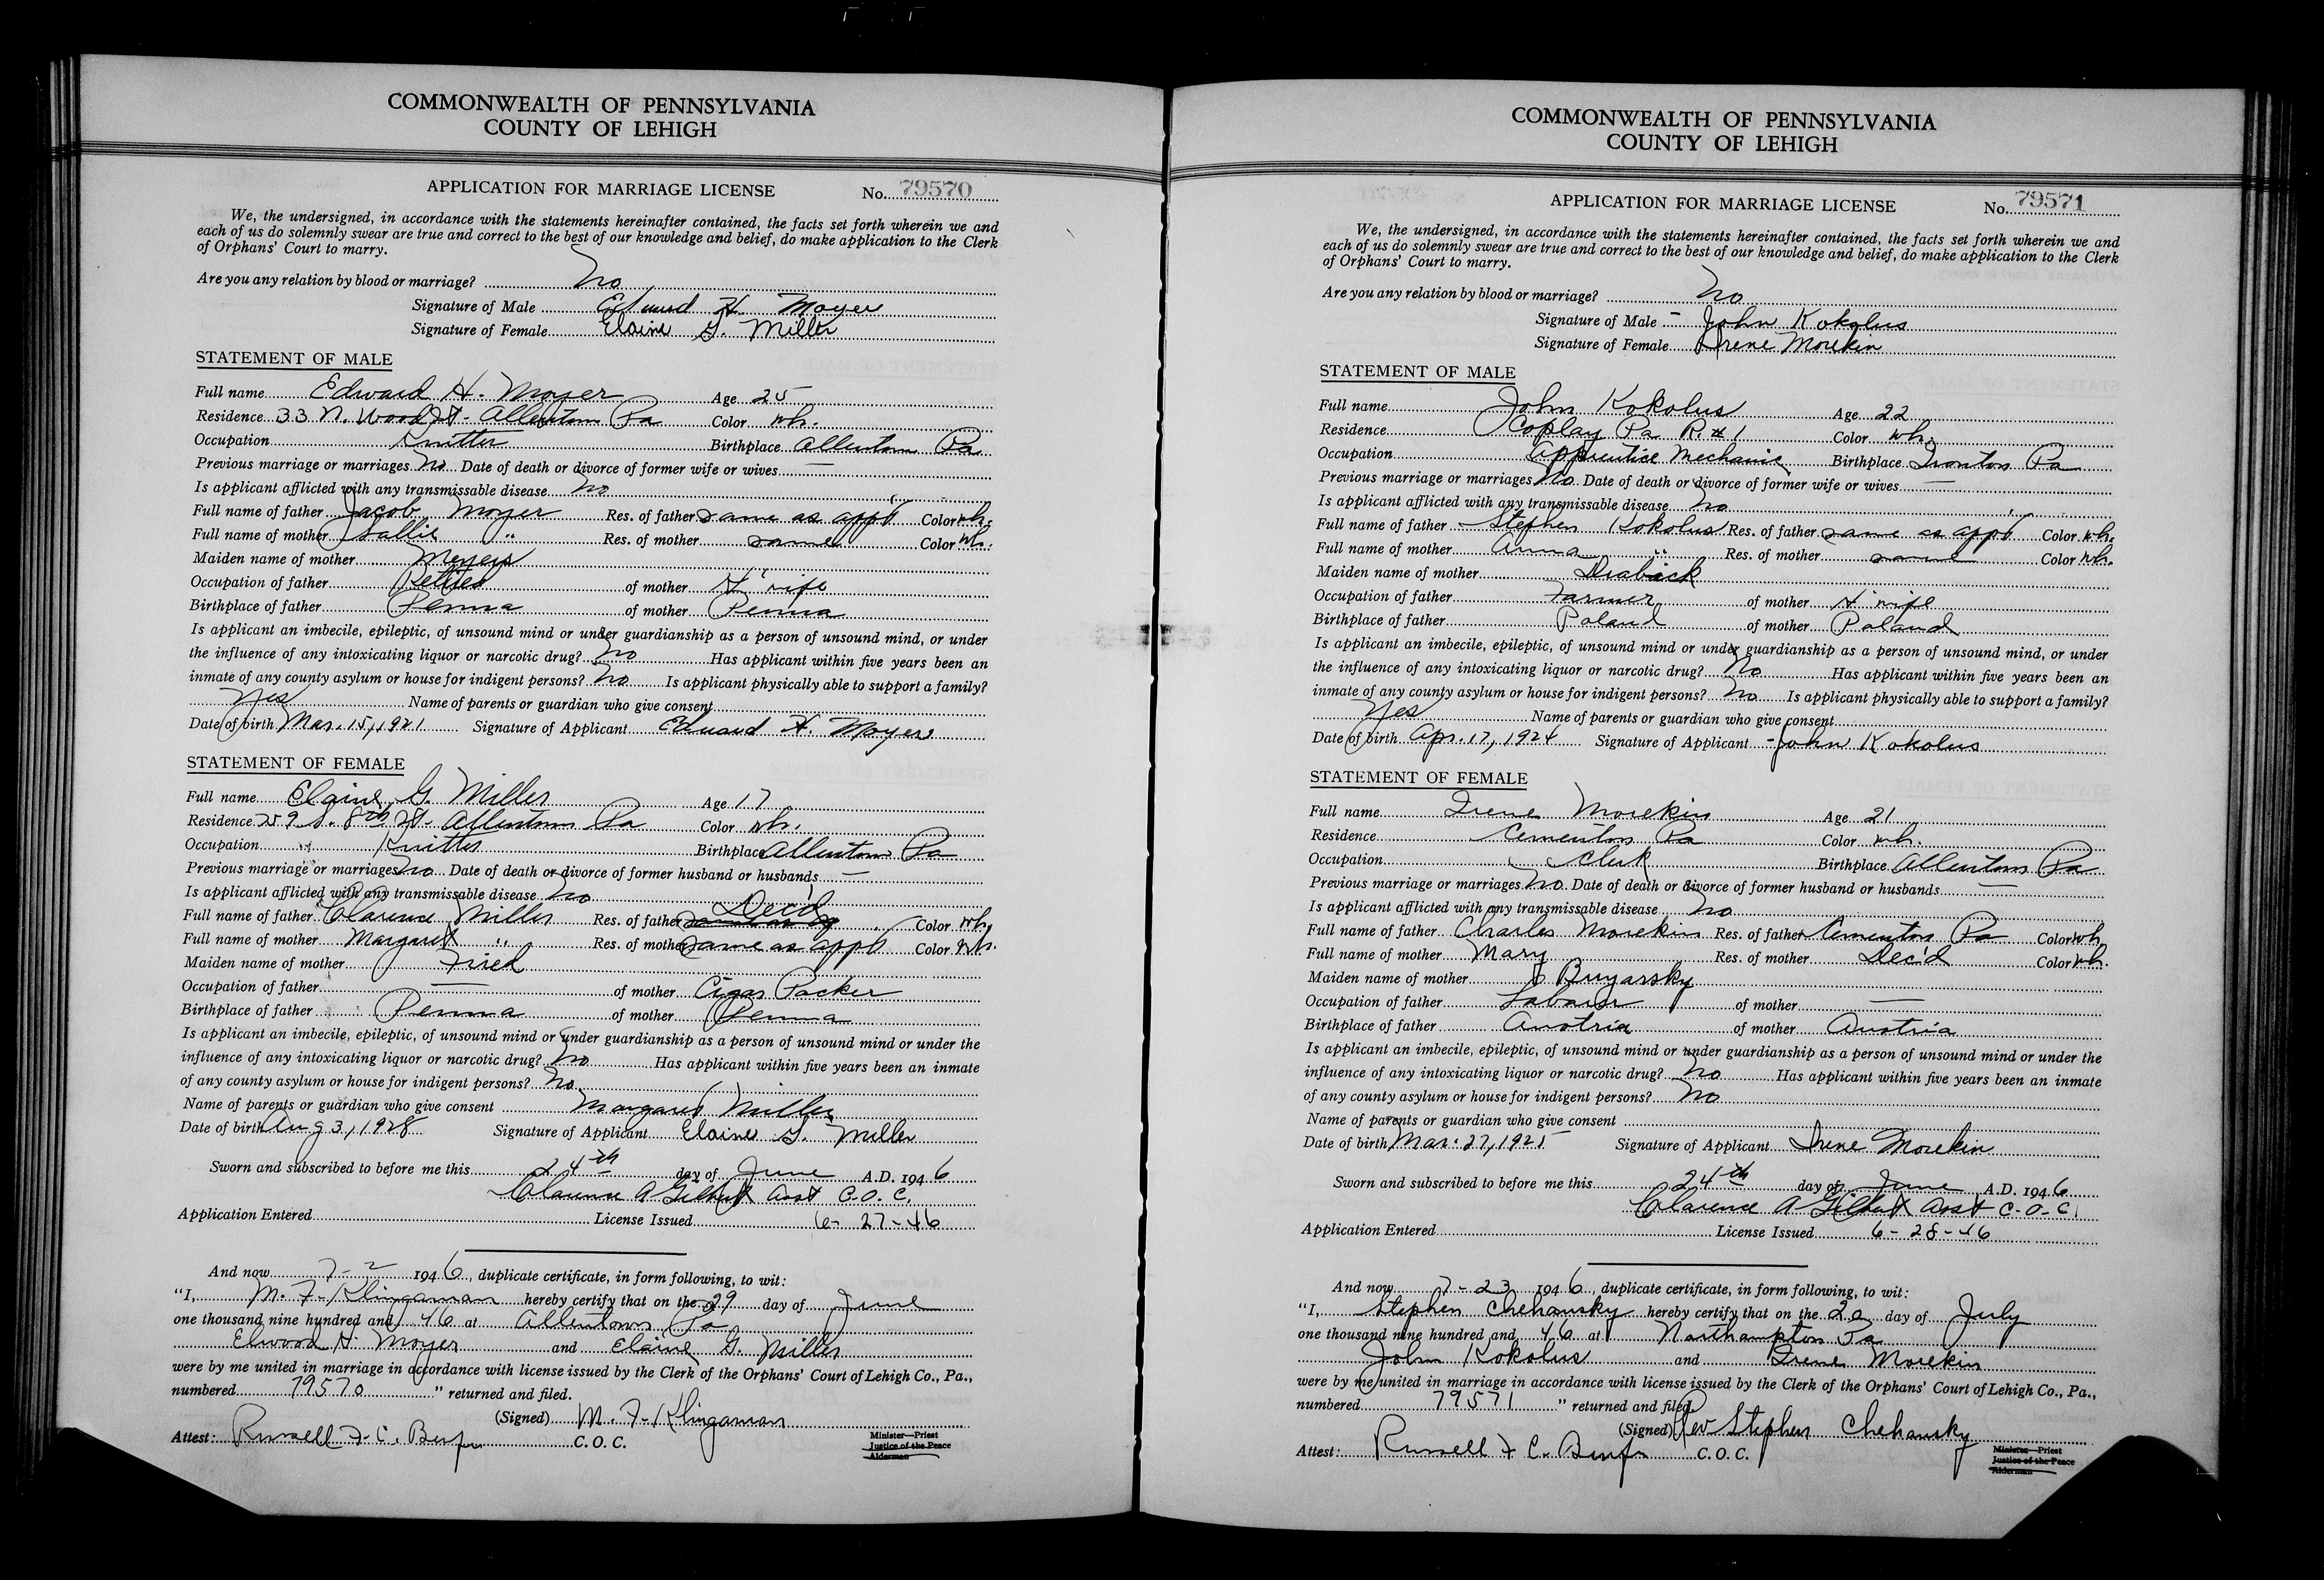 COMMONWEALTH OF PENNSYLVANIA
COUNTY OF LEHIGH
APPLICATION FOR MARRIAGE LICENSE No. 79570
We, the undersigned, in accordance with the statements hereinafter contained, the facts set forth wherein we and
each of us do solemnly swear are true and correct to the best of our knowledge and belief, do make application to the Clerk
of Orphans' Court to marry.
Are you any relation by blood or marriage? no
Signature of Male Edward H. Moyer
Signature of Female Elaine G. Miller
STATEMENT OF MALE
Full name Edward H. Moyer Age 25
Residence 33 N. Wood St. Allentown Pa Color wh.
Occupation Knitter Birthplace Allentown Pa
Previous marriage or marriages no Date of death or divorce of former wife or wives —
Is applicant afflicted with any transmissable disease no
Full name of father Jacob Moyer Res. of father same as appl Color wh.
Full name of mother Sallie " Res. of mother same Color wh.
Maiden name of mother Meyers
Occupation of father Retired of mother H'wife
Birthplace of father Penna of mother Penna
Is applicant an imbecile, epileptic, of unsound mind or under guardianship as a person of unsound mind, or under
the influence of any intoxicating liquor or narcotic drug? no Has applicant within five years been an
inmate of any county asylum or house for indigent persons? no Is applicant physically able to support a family?
yes Name of parents or guardian who give consent
Date of birth Mar. 15, 1921 Signature of Applicant Edward H. Moyer
STATEMENT OF FEMALE
Full name Elaine G. Miller Age 17
Residence 259 S. 8th St. Allentown Pa Color wh.
Occupation Knitter Birthplace Allentown Pa
Previous marriage or marriages no Date of death or divorce of former husband or husbands —
Is applicant afflicted with any transmissable disease no
Full name of father Clarence Miller Res. of father Dec'd Color wh.
Full name of mother Margaret " Res. of mother same as appl Color wh.
Maiden name of mother Fried
Occupation of father — of mother Cigar Packer
Birthplace of father Penna of mother Penna
Is applicant an imbecile, epileptic, of unsound mind or under guardianship as a person of unsound mind or under the
influence of any intoxicating liquor or narcotic drug? no Has applicant within five years been an inmate
of any county asylum or house for indigent persons? no
Name of parents or guardian who give consent Margaret Miller
Date of birth Aug 3, 1928 Signature of Applicant Elaine G. Miller
Sworn and subscribed to before me this 24th day of June A.D. 1946
Clarence A Gilbert Asst C.O.C.
Application Entered License Issued 6-27-46
And now 7-2 1946, duplicate certificate, in form following, to wit:
"I, M. F. Klingaman hereby certify that on the 29 day of June
one thousand nine hundred and 46 at Allentown Pa
Elwood H. Moyer and Elaine G. Miller
were by me united in marriage in accordance with license issued by the Clerk of the Orphans' Court of Lehigh Co., Pa.,
numbered 79570 " returned and filed.
(Signed) M. F. Klingaman
Attest: Russell F. C. C.O.C.
Minister—Priest
Justice of the Peace
Alderman
COMMONWEALTH OF PENNSYLVANIA
COUNTY OF LEHIGH
APPLICATION FOR MARRIAGE LICENSE No. 79571
We, the undersigned, in accordance with the statements hereinafter contained, the facts set forth wherein we and
each of us do solemnly swear are true and correct to the best of our knowledge and belief, do make application to the Clerk
of Orphans' Court to marry.
Are you any relation by blood or marriage? no
Signature of Male John Kokolus
Signature of Female Irene Morekin
STATEMENT OF MALE
Full name John Kokolus Age 22
Residence Coplay Pa R. #1 Color wh.
Occupation Apprentice Mechanic Birthplace Ironton Pa
Previous marriage or marriages no Date of death or divorce of former wife or wives —
Is applicant afflicted with any transmissable disease no
Full name of father Stephen Kokolus Res. of father same as appl Color wh.
Full name of mother Anna " Res. of mother same Color wh.
Maiden name of mother Drabick
Occupation of father Farmer of mother H'wife
Birthplace of father Poland of mother Poland
Is applicant an imbecile, epileptic, of unsound mind or under guardianship as a person of unsound mind, or under
the influence of any intoxicating liquor or narcotic drug? no Has applicant within five years been an
inmate of any county asylum or house for indigent persons? no Is applicant physically able to support a family?
yes Name of parents or guardian who give consent
Date of birth Apr. 17, 1924 Signature of Applicant John Kokolus
STATEMENT OF FEMALE
Full name Irene Morekin Age 21
Residence Cementon Pa Color wh.
Occupation Clerk Birthplace Allentown Pa
Previous marriage or marriages no Date of death or divorce of former husband or husbands —
Is applicant afflicted with any transmissable disease no
Full name of father Charles Morekin Res. of father Cementon Pa Color wh.
Full name of mother Mary Res. of mother Dec'd Color wh.
Maiden name of mother Buyarsky
Occupation of father Laborer of mother —
Birthplace of father Austria of mother Austria
Is applicant an imbecile, epileptic, of unsound mind or under guardianship as a person of unsound mind or under the
influence of any intoxicating liquor or narcotic drug? no Has applicant within five years been an inmate
of any county asylum or house for indigent persons? no
Name of parents or guardian who give consent
Date of birth Mar. 27, 1925 Signature of Applicant Irene Morekin
Sworn and subscribed to before me this 24th day of June A.D. 1946
Clarence A Gilbert Asst C.O.C.
Application Entered License Issued 6-28-46
And now 7-23 1946, duplicate certificate, in form following, to wit:
"I, Stephen Chehansky hereby certify that on the 20 day of July
one thousand nine hundred and 46 at Northampton Pa
John Kokolus and Irene Morekin
were by me united in marriage in accordance with license issued by the Clerk of the Orphans' Court of Lehigh Co., Pa.,
numbered 79571 " returned and filed.
(Signed) Rev Stephen Chehansky
Attest: Russell F. C. C.O.C.
Minister—Priest
Justice of the Peace
Alderman